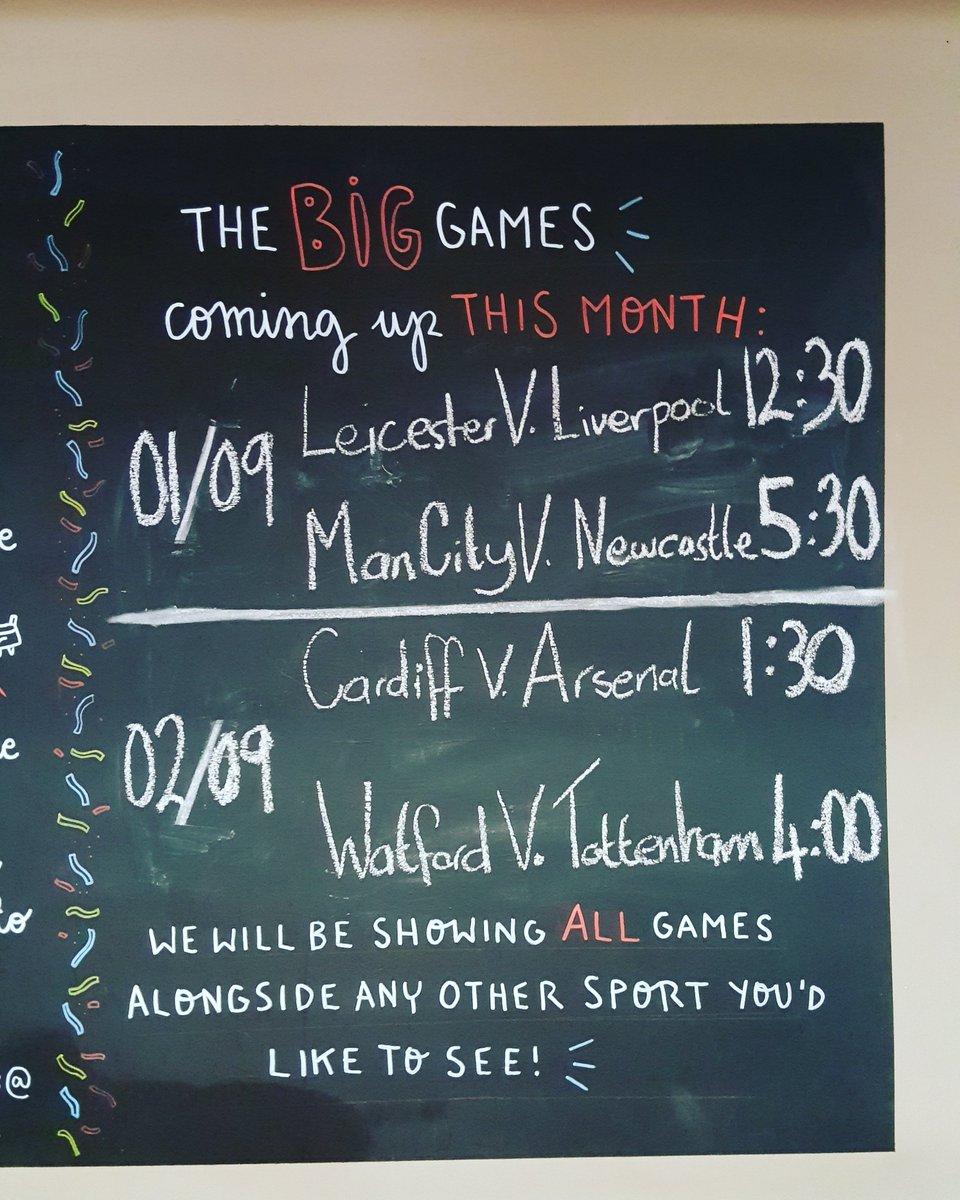 THE BIG GAMES
coming up THIS MONTH:
01/09
Leicester V. Liverpool 12:30
Man City V. Newcastle 5:30
02/09
Cardiff V. Arsenal 1:30
Watford V. Tottenham 4:00
WE WILL BE SHOWING ALL GAMES
ALONGSIDE ANY OTHER SPORT YOU'D
LIKE TO SEE!
e
e
to
@